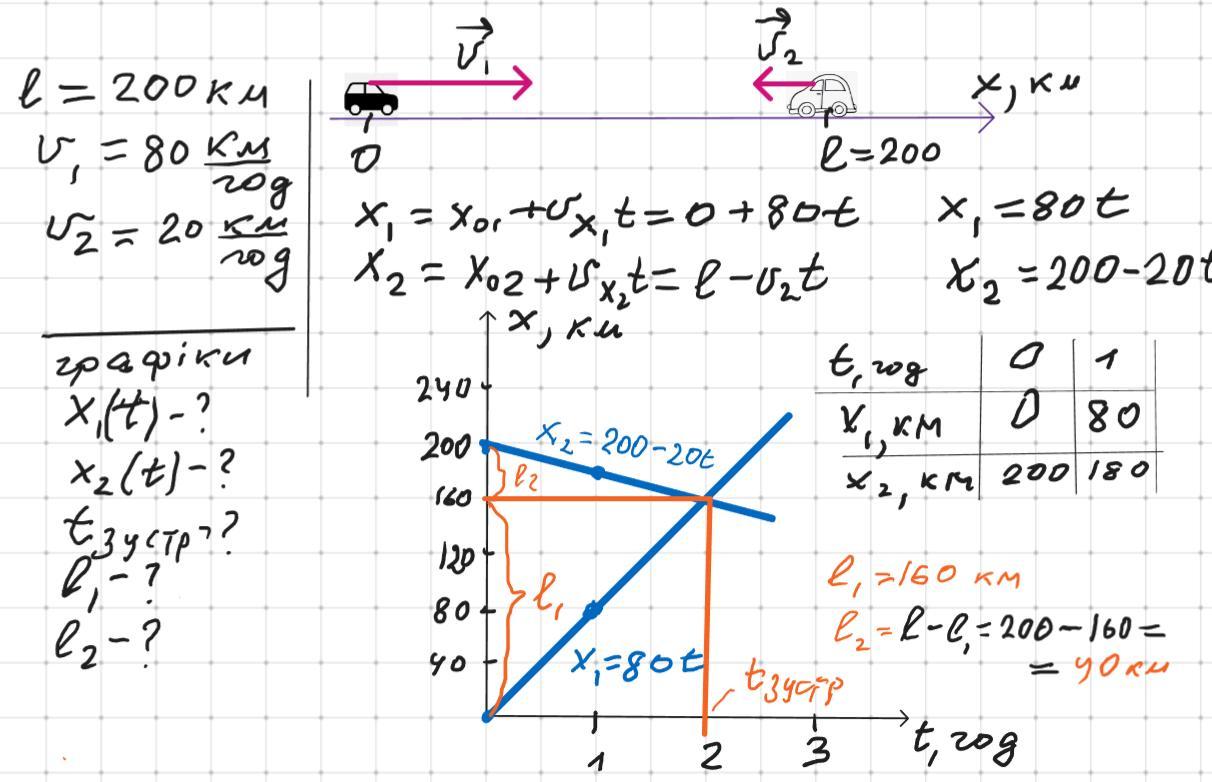 l = 200 км
v₁ = 80 км/год
v₂ = 20 км/год
графіки
x₁(t) - ?
x₂(t) - ?
tзустр - ?
l₁ - ?
l₂ - ?
v₁
v₂
x, км
0
l = 200
x₁ = x₀₁ + vₓ₁t = 0 + 80t
x₁ = 80t
x₂ = x₀₂ + vₓ₂t = l - v₂t
x₂ = 200 - 20t
x, км
240
200
160
120
80
40
x₂ = 200 - 20t
l₂
l₁
x₁ = 80t
tзустр
1
2
3
t, год
t, год 0 1
x₁, км 0 80
x₂, км 200 180
l₁ = 160 км
l₂ = l - l₁ = 200 - 160 =
= 40 км